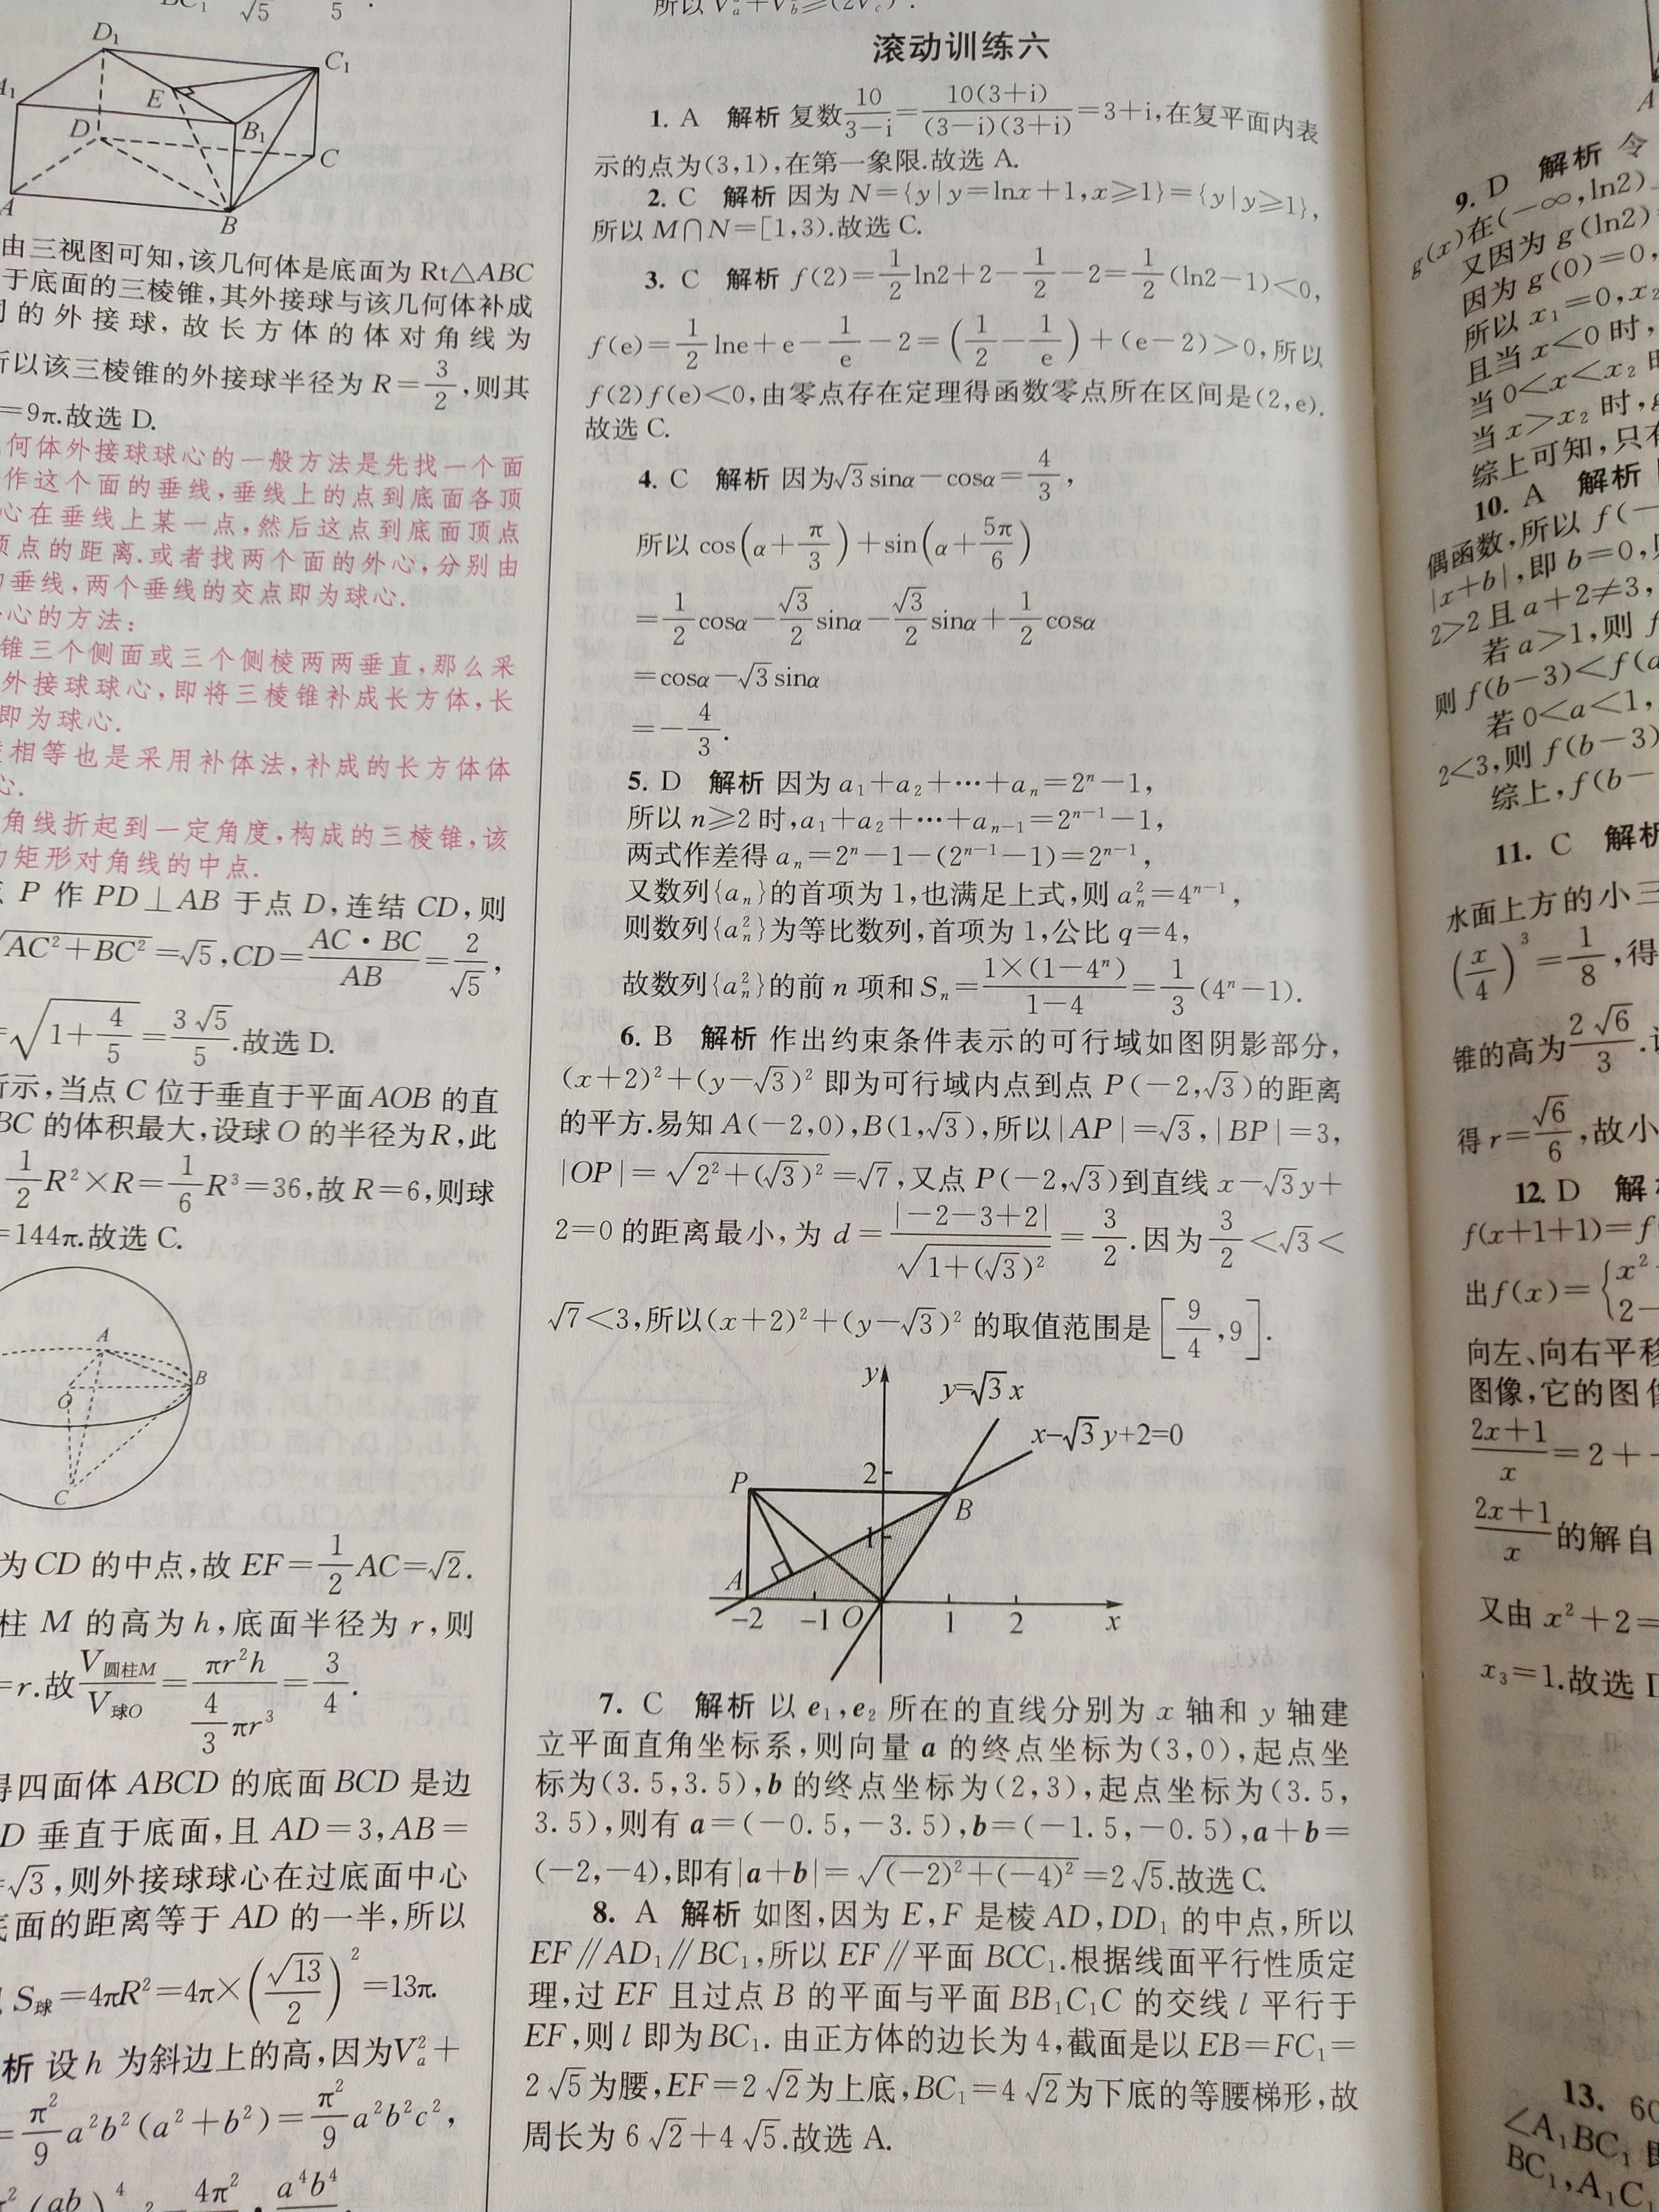 D₁
C₁
E
B₁
D
C
A
B
由三视图可知,该几何体是底面为 Rt△ABC
于底面的三棱锥,其外接球与该几何体补成
的外接球,故长方体的体对角线为
所以该三棱锥的外接球半径为 R=3/2,则其
=9π.故选 D.
何体外接球球心的一般方法是先找一个面
作这个面的垂线,垂线上的点到底面各顶
心在垂线上某一点,然后这点到底面顶点
顶点的距离.或者找两个面的外心,分别由
垂线,两个垂线的交点即为球心.
心的方法:
锥三个侧面或三个侧棱两两垂直,那么采
外接球球心,即将三棱锥补成长方体,长
即为球心.
相等也是采用补体法,补成的长方体体
心.
角线折起到一定角度,构成的三棱锥,该
矩形对角线的中点.
P 作 PD⊥AB 于点 D,连结 CD,则
√(AC²+BC²)=√5,CD=AC·BC/AB=2/√5,
=√(1+4/5)=3√5/5.故选 D.
所示,当点 C 位于垂直于平面 AOB 的直
BC 的体积最大,设球 O 的半径为 R,此
1/2 R²×R=1/6 R³=36,故 R=6,则球
=144π.故选 C.
A
O
B
C
为 CD 的中点,故 EF=1/2 AC=√2.
柱 M 的高为 h,底面半径为 r,则
=r.故 V圆柱M/V球O=πr²h/(4/3 πr³)=3/4.
得四面体 ABCD 的底面 BCD 是边
D 垂直于底面,且 AD=3,AB=
=√3,则外接球球心在过底面中心
底面的距离等于 AD 的一半,所以
S球=4πR²=4π×(√13/2)²=13π.
析 设 h 为斜边上的高,因为 Vₐ²+
=π²/9 a²b²(a²+b²)=π²/9 a²b²c²,
滚动训练六
1. A 解析 复数10/(3-i)=10(3+i)/((3-i)(3+i))=3+i,在复平面内表
示的点为(3,1),在第一象限.故选 A.
2. C 解析 因为 N={y|y=lnx+1,x≥1}={y|y≥1},
所以 M∩N=[1,3).故选 C.
3. C 解析 f(2)=1/2 ln2+2-1/2-2=1/2(ln2-1)<0,
f(e)=1/2 lne+e-1/e-2=(1/2-1/e)+(e-2)>0,所以
f(2)f(e)<0,由零点存在定理得函数零点所在区间是(2,e).
故选 C.
4. C 解析 因为√3 sinα-cosα=4/3,
所以 cos(α+π/3)+sin(α+5π/6)
=1/2 cosα-√3/2 sinα-√3/2 sinα+1/2 cosα
=cosα-√3 sinα
=-4/3.
5. D 解析 因为 a₁+a₂+…+aₙ=2ⁿ-1,
所以 n≥2 时,a₁+a₂+…+aₙ₋₁=2ⁿ⁻¹-1,
两式作差得 aₙ=2ⁿ-1-(2ⁿ⁻¹-1)=2ⁿ⁻¹,
又数列{aₙ}的首项为 1,也满足上式,则 aₙ²=4ⁿ⁻¹,
则数列{aₙ²}为等比数列,首项为 1,公比 q=4,
故数列{aₙ²}的前 n 项和 Sₙ=1×(1-4ⁿ)/(1-4)=1/3(4ⁿ-1).
6. B 解析 作出约束条件表示的可行域如图阴影部分,
(x+2)²+(y-√3)² 即为可行域内点到点 P(-2,√3)的距离
的平方.易知 A(-2,0),B(1,√3),所以|AP|=√3,|BP|=3,
|OP|=√(2²+(√3)²)=√7,又点 P(-2,√3)到直线 x-√3y+
2=0 的距离最小,为 d=|-2-3+2|/√(1+(√3)²)=3/2.因为3/2<√3<
√7<3,所以(x+2)²+(y-√3)² 的取值范围是[9/4,9].
y
y=√3x
x-√3y+2=0
2
P
B
1
A
-2 -1 O 1 2 x
7. C 解析 以 e₁,e₂ 所在的直线分别为 x 轴和 y 轴建
立平面直角坐标系,则向量 a 的终点坐标为(3,0),起点坐
标为(3.5,3.5),b 的终点坐标为(2,3),起点坐标为(3.5,
3.5),则有 a=(-0.5,-3.5),b=(-1.5,-0.5),a+b=
(-2,-4),即有|a+b|=√((-2)²+(-4)²)=2√5.故选 C.
8. A 解析 如图,因为 E,F 是棱 AD,DD₁ 的中点,所以
EF∥AD₁∥BC₁,所以 EF∥平面 BCC₁.根据线面平行性质定
理,过 EF 且过点 B 的平面与平面 BB₁C₁C 的交线 l 平行于
EF,则 l 即为 BC₁. 由正方体的边长为 4,截面是以 EB=FC₁=
2√5为腰,EF=2√2为上底,BC₁=4√2为下底的等腰梯形,故
周长为 6√2+4√5.故选 A.
9. D 解析 令
g(x)在(-∞,ln2)
又因为 g(ln2)
因为 g(0)=0,
所以 x₁=0,x₂
且当 x<0 时,
当 0<x<x₂
当 x>x₂ 时,
综上可知,只有
10. A 解析
偶函数,所以 f(-
|x+b|,即 b=0,
2>2 且 a+2≠3,
若 a>1,则 f
则 f(b-3)<f(a
若 0<a<1,
2<3,则 f(b-3)
综上,f(b-
11. C 解析
水面上方的小三
(x/4)³=1/8,得
锥的高为2√6/3.
得 r=√6/6,故小
12. D 解
f(x+1+1)=f
出 f(x)={x²
2-
向左、向右平移
图像,它的图像
(2x+1)/x=2+
(2x+1)/x的解自
又由 x²+2=
x₃=1.故选 D
13. 60
∠A₁BC₁
BC₁,A₁C₁